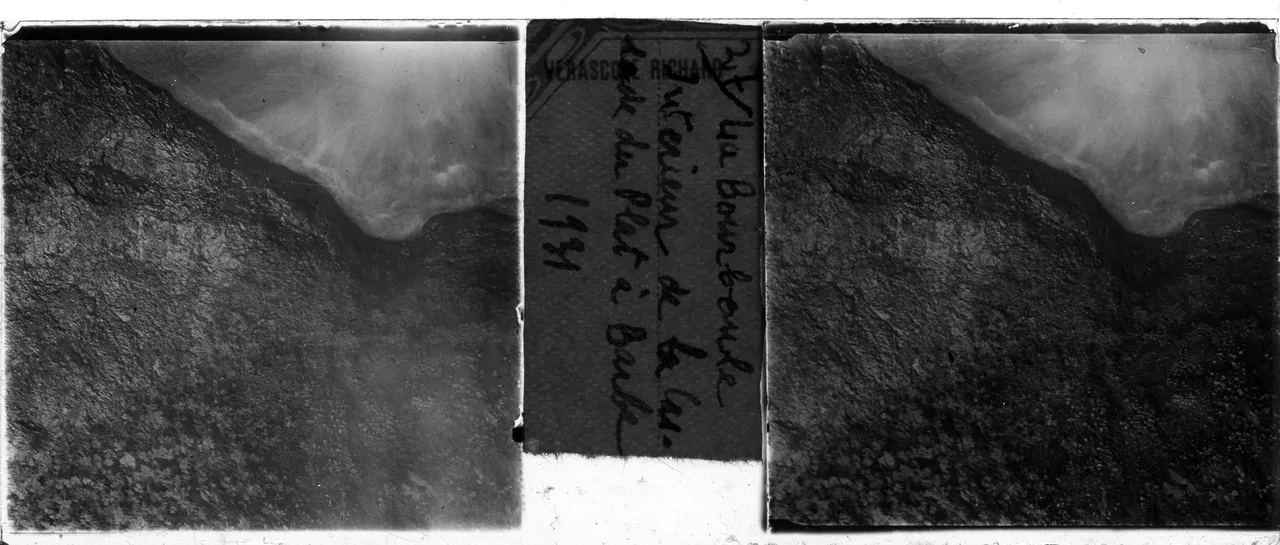 VERASCOPE RICHARD
27 La Bourboule
Intérieur de la Cas-
cade du Plat à Barbe
1931